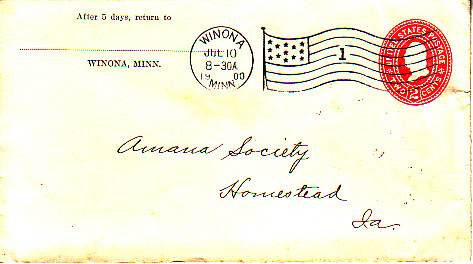 After 5 days, return to
WINONA, MINN.
WINONA
JUL 10
8-30A
1900
MINN.
1
UNITED STATES POSTAGE
TWO 2 CENTS
Amana Society
Homestead
Ia.